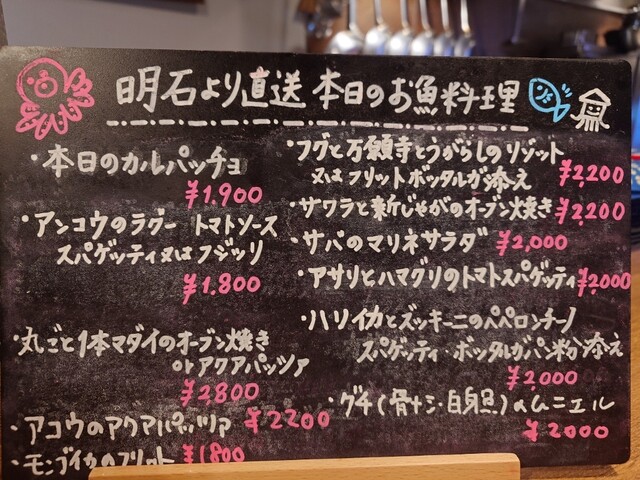 明石より直送 本日のお魚料理
・本日のカルパッチョ
¥1.900
・アンコウのラグー トマトソース
スパゲッティ又はフジッリ
¥1.800
・丸ごと1本マダイのオーブン焼き
orアクアパッツァ
¥2800
・アコウのアクアパッツァ ¥2200
・モンゴイカのフリット ¥1800
・フグと万願寺とうがらしのリゾット
又はフリットボッタルガ添え ¥2,200
・サワラと新じゃがのオーブン焼き ¥2,200
・サバのマリネサラダ ¥2,000
・アサリとハマグリのトマトスパゲッティ ¥2,000
・ハリイカとズッキーニのペペロンチーノ
スパゲッティ・ボッタルガパン粉添え
¥2000
・グチ(骨ナシ・白身魚)のムニエル
¥2000